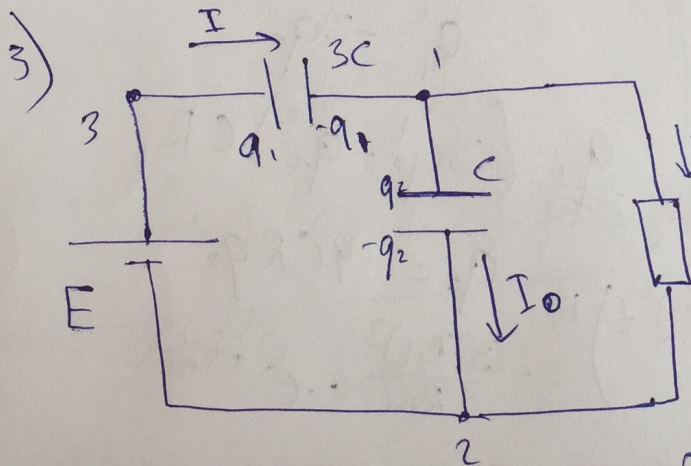 3)
I
3C
1
3
q₁
-q₁
q₂
C
-q₂
E
I₀
2